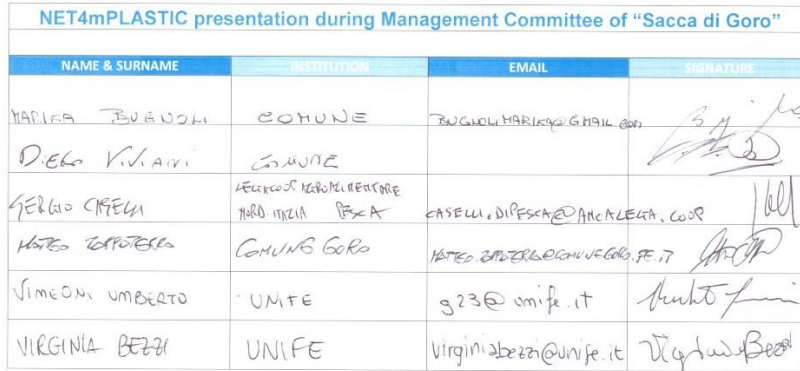 NET4mPLASTIC presentation during Management Committee of “Sacca di Goro”
NAME & SURNAME INSTITUTION EMAIL SIGNATURE
MARIKA BUGNOLI COMUNE BUGNOLIMARIKA@GMAIL.COM
DIEGO VIVIANI COMUNE
LEGACOOP AGROALIMENTARE
SERGIO CASELLI NORD ITALIA PESCA CASELLI.DIPESCA@ANCALEGA.COOP
MATTEO ZAPPOTERRA COMUNE GORO MATTEO.ZAPPOTERRA@COMUNE.GORO.FE.IT
SIMEONI UMBERTO UNIFE g23@unife.it
VIRGINIA BEZZI UNIFE virginiabezzi@unife.it Virginia Bezzi